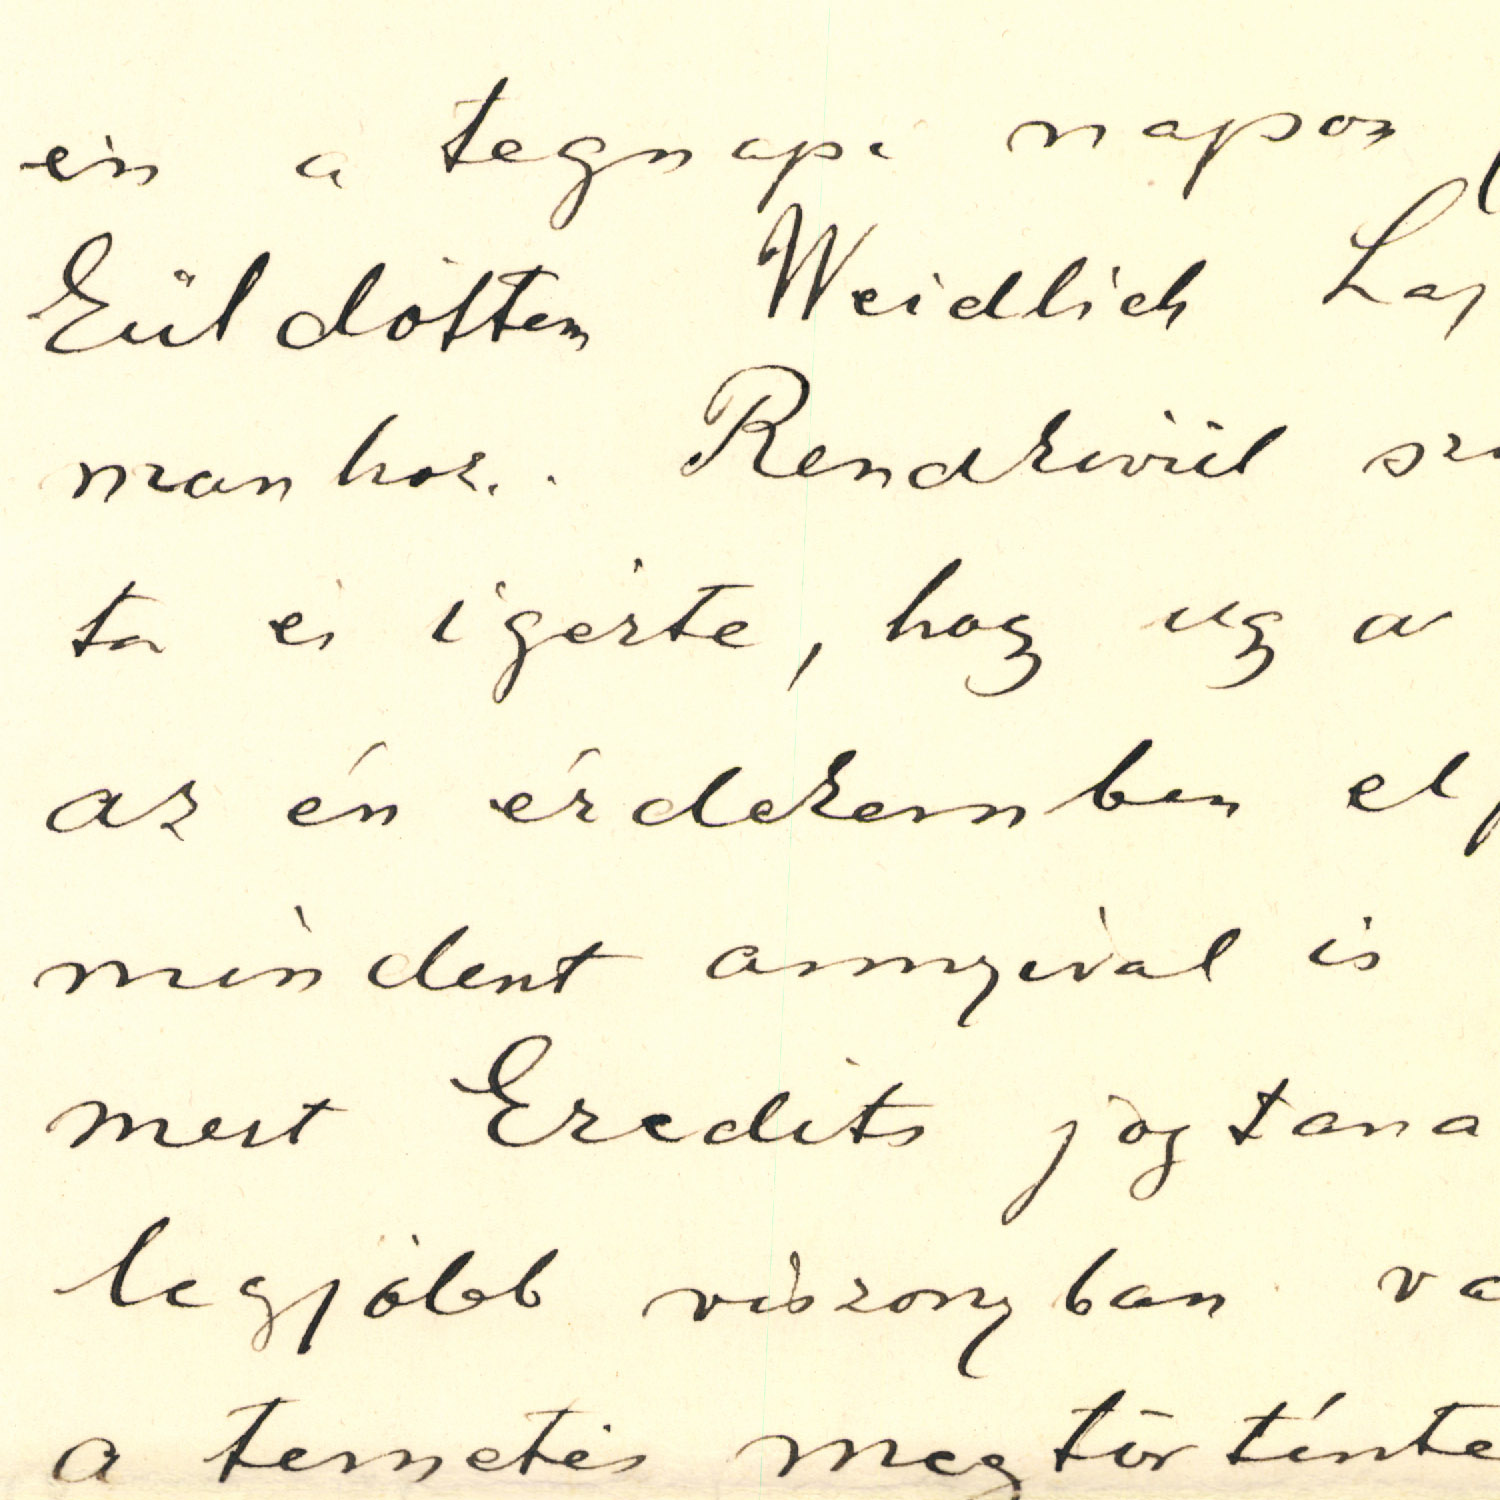 én a tegnapi napon
küldöttem Weidlich
manhoz.. Rendkivül
ta és igérte, hogy ugy a
az én érdekemben el
mindent annyival is
mert Kredits jogtana
legjobb viszonyban va
a temetés megtörténte